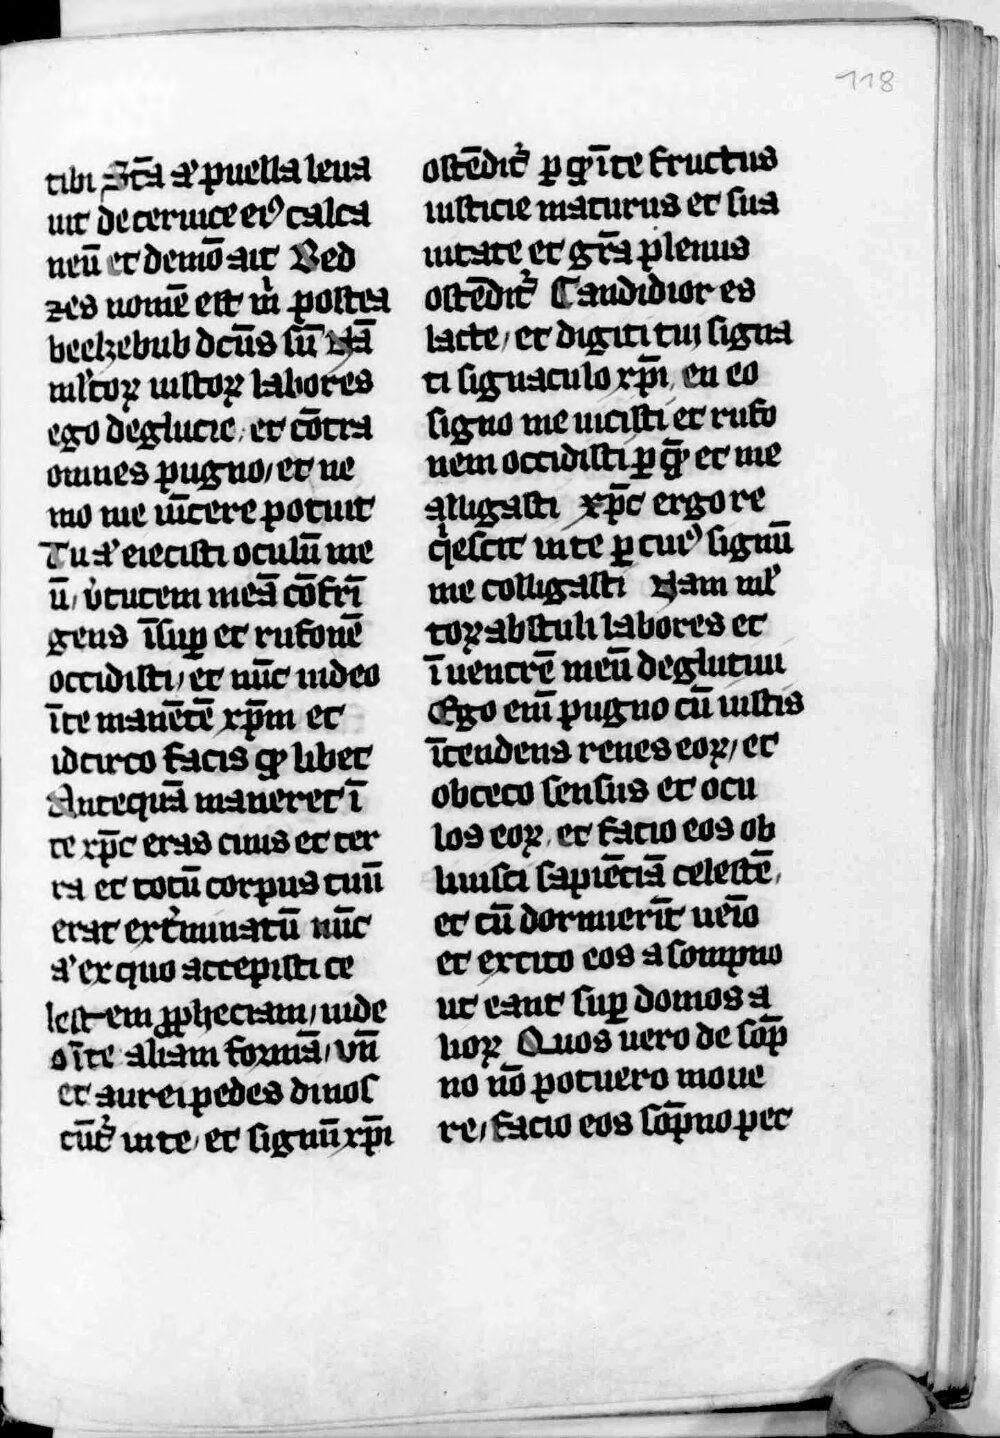 118
tibi Sc̄a aͤ puella leua
uit de ceruice eiꝰ calca
neū et demō ait Bed
zes nomē est m̄ postea
beelzebub dcūs sū Nā
ml̓toꝝ iustoꝝ labores
ego deglucie, et cōtra
omnes pugno, et ne
mo me uīcere potuit
Tu aͤ eiecisti oculū me
ū, v̓tutem meā cōfrī
gens īsuꝑ et rufonē
occidisti, et nūc uideo
īte manētē xp̄m et
idcirco facis qͦ libet
Antequā maneret ī
te xp̄c eras cinis et ter
ra et totū corpus tuū
erat ext̓minatū nūc
aͤ ex quo accepisti ce
lestem ꝓphectam, uide
o īte aliam formā, vn̄
et aurei pedes dinos
cūt̓ in te, et signū xp̄i
ostēdit̓ ꝑ qͦ īte fructus
iusticie maturus et sua
uitate et gr̄a plenus
ostēdit̓ Candidior es
lacte, et digiti tui signa
ti signaculo xp̄i, en eo
signo me uicisti et rufo
nem occidisti ꝑ qͦ et me
alligasti xp̄c ergo re
qͥescit in te ꝑ cuiꝰ signū
me colligasti Nam ml̓
toꝝ abstuli labores et
ī uentrē meū deglutiui
Ego em̄ pugno cū iustis
ītendens renes eoꝝ, et
obceco sensus et ocu
los eoꝝ, et facio eos ob
liuisci sapiētiā celestē,
et cū dormierīt ueīo
et excito eos a sompno
ut eant suꝑ domos a
lioꝝ Quos uero de sōp
no nō potuero moue
re, facio eos sōpno pec